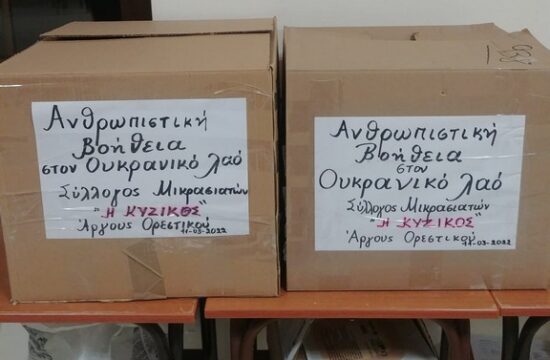 Ανθρωπιστική
Βοήθεια
στον Ουκρανικό λαό
Σύλλογος Μικρασιατών
"Η ΚΥΖΙΚΟΣ"
Άργους Ορεστικού
11-03-2022
Ανθρωπιστική
Βοήθεια
στον
Ουκρανικό λαό
Σύλλογος Μικρασιατών
"Η ΚΥΖΙΚΟΣ"
Άργους Ορεστικού
11-03-2022